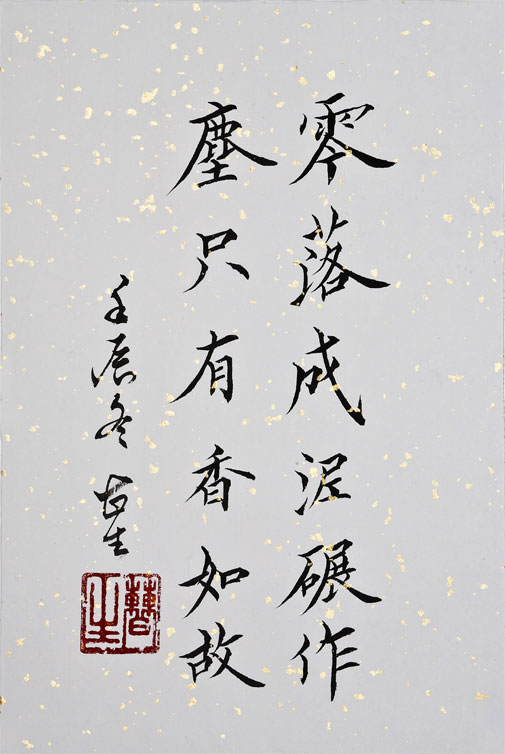 零落成泥碾作
塵只有香如故
壬辰冬